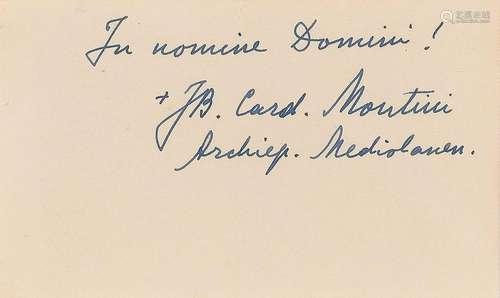 In nomine Domini!
+ JB. Card. Montini
Archiep. Mediolanen.